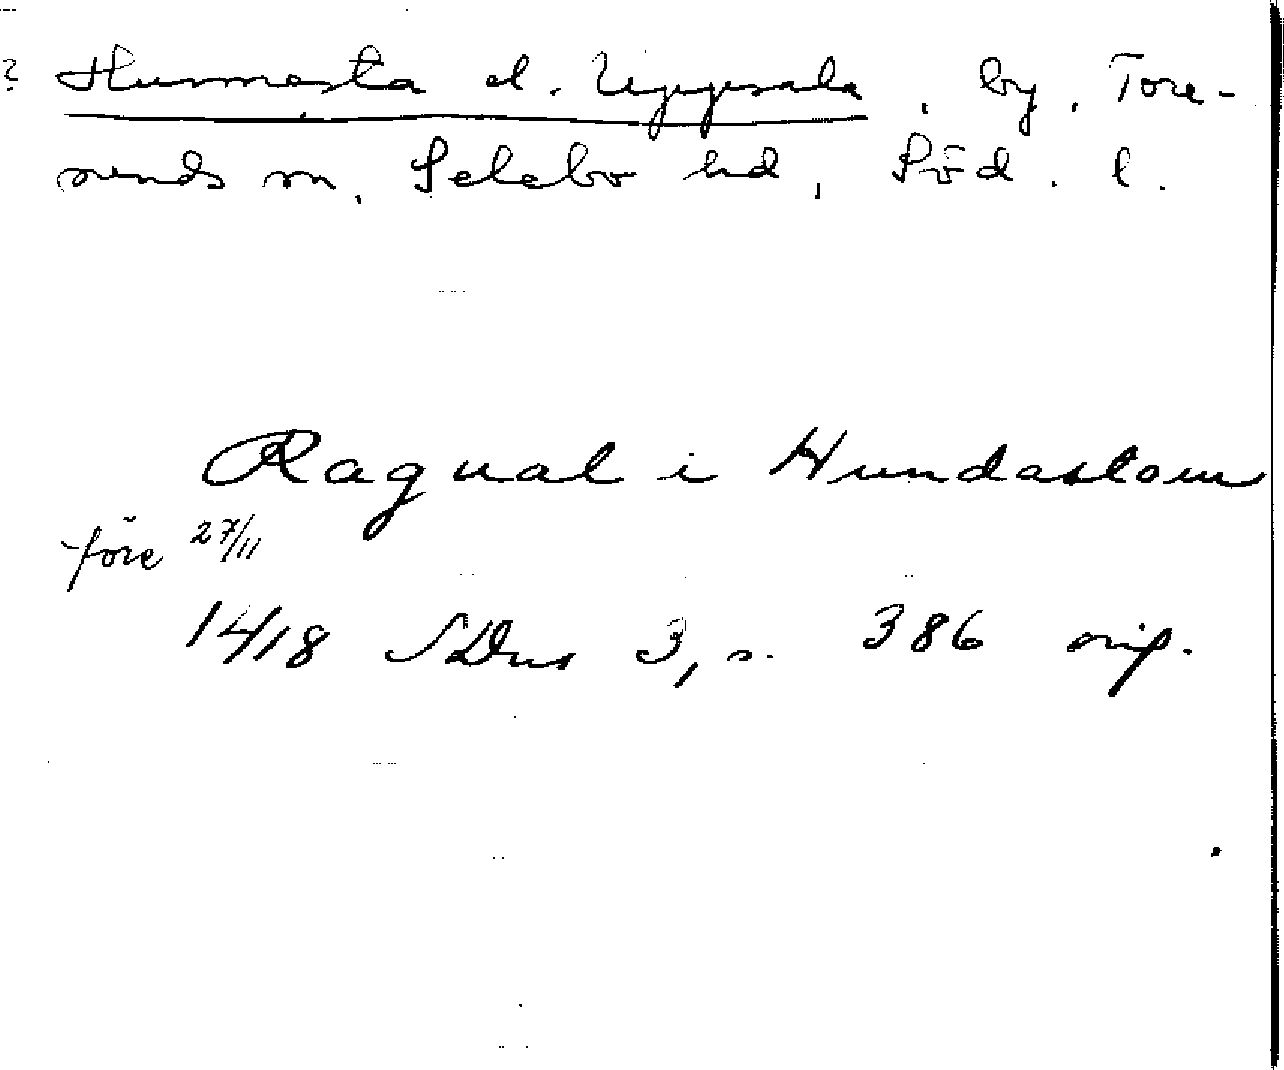 ? Hunnesta el. Uppsala, by, Tore-
sunds sn, Selebo hd, Söd. l.
Ragual i Hundastom
före 27/11
1418 SDns 3, s. 386 orig.